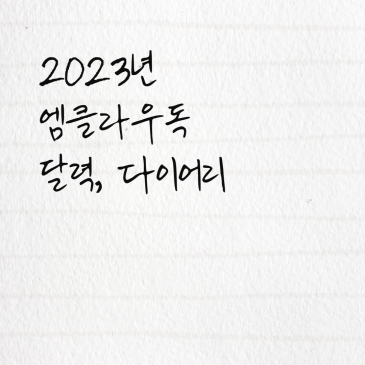 2023년
엠클라우독
달력, 다이어리